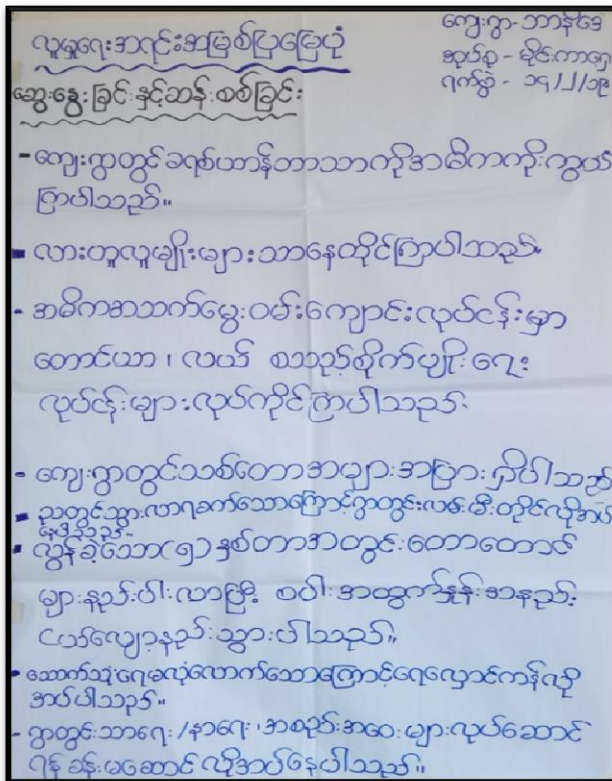 လူမှုရေးအရင်းအမြစ်ပြမြေပုံ
ကျေးရွာ-ဘာနံဒေ
အုပ်စု - မိုင်းကာရှေ
ရက်စွဲ - ၁၄/၂/၁၉
ဆွေးနွေးခြင်းနှင့်ဆန်းစစ်ခြင်း
-ကျေးရွာတွင်ခရစ်ယာန်ဘာသာကိုအဓိကကိုးကွယ်
ကြပါသည်။
- လားဟူလူမျိုးများသာနေထိုင်ကြပါသည်
- အဓိကအသက်မွေးဝမ်းကျောင်းလုပ်ငန်းမှာ
တောင်ယာ၊ လယ် စသည့်စိုက်ပျိုးရေး
လုပ်ငန်းများလုပ်ကိုင်ကြပါသည်
- ကျေးရွာတွင်သစ်တောအများအပြားရှိပါသည်
- ညတွင်သွားလာရခက်သောကြောင့်ရွာတွင်းလမ်းမီးတိုင်လိုအပ်
နေပါသည်
- လွန်ခဲ့သော(၅)နှစ်တာအတွင်းတောတောင်
များနည်းပါးလာပြီး စပါးအထွက်နှုန်းအနည်း
ငယ်လျော့နည်းသွားပါသည်။
- သောက်သုံးရေမလုံလောက်သောကြောင့်ရေလှောင်ကန်လို
အပ်ပါသည်။
- ရွာတွင်းသာရေး/နာရေး၊အစည်းအဝေးများလုပ်ဆောင်
ရန်ခန်းမဆောင်လိုအပ်နေပါသည်။